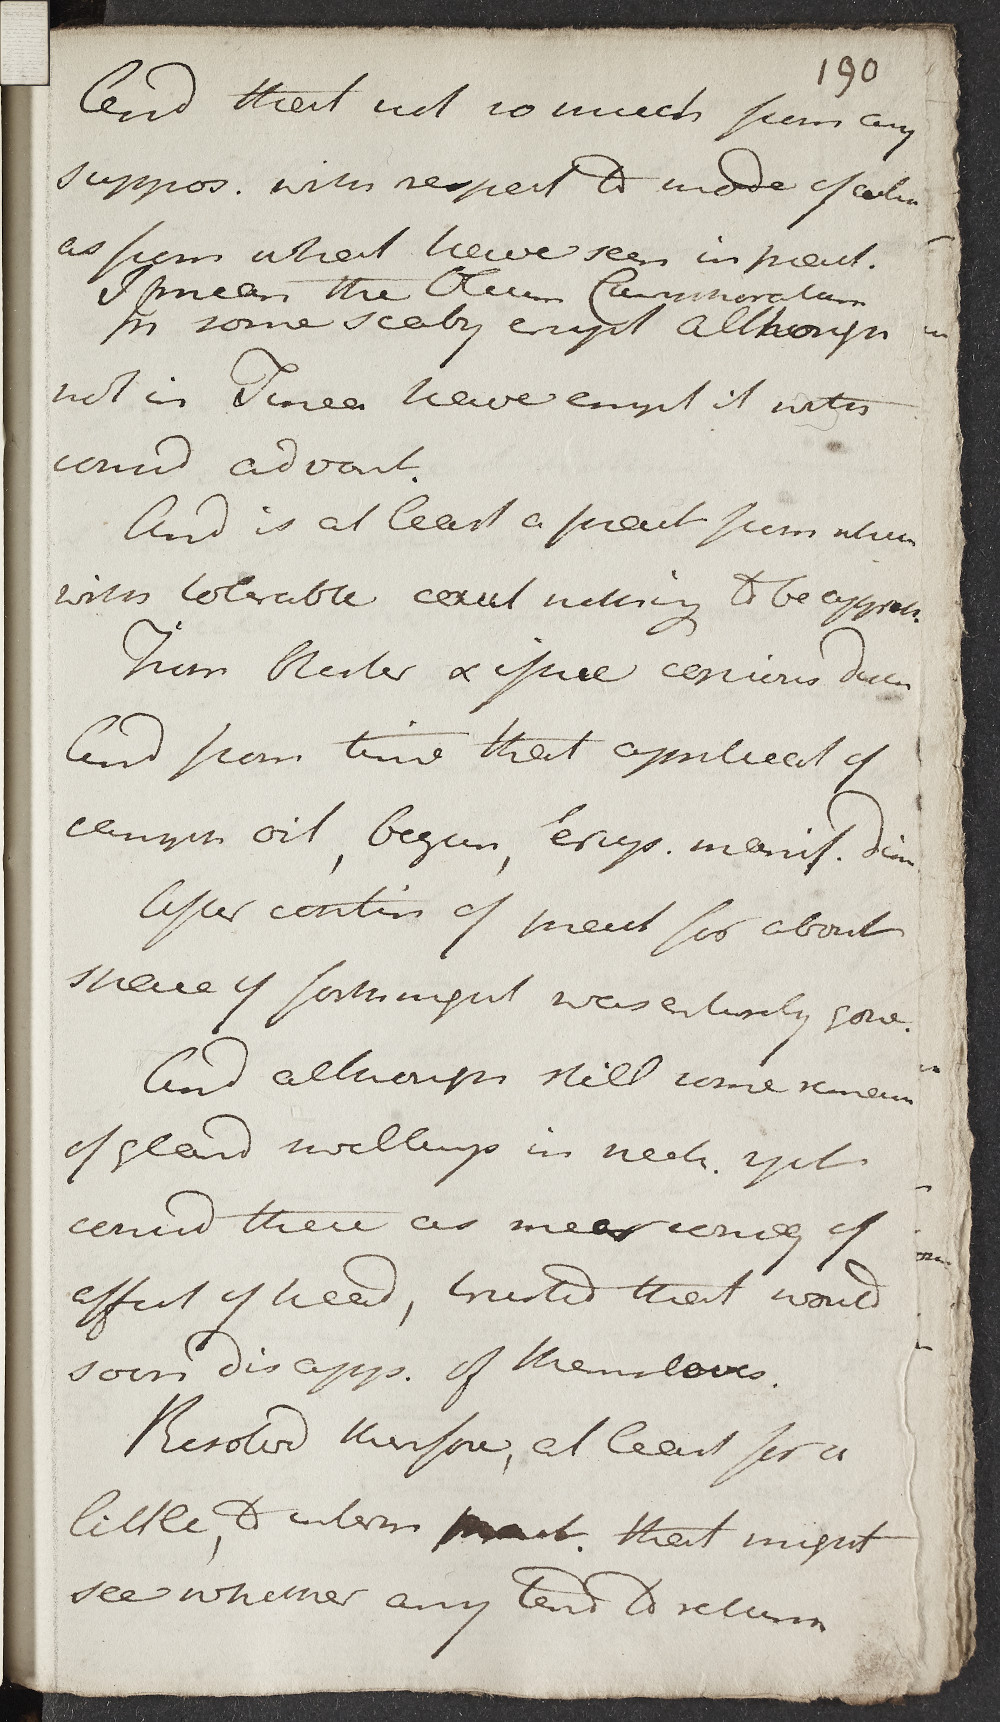 190
And that not so much from any
suppos. with respect to mode of
as from what have seen in pract.
I mean the Oleum Camphoratum
In some scaby erupt although
not in Tinea have empt it with
consid advant.
And is at least a pract from when
with tolerable caut nothing to be appreh.
From blister & issue copious
And from time that applicat of
camph oil, begun, erup. manif. dim
After contin of pract for about
space of fortnight was entirely gone.
And although still some remain
of gland swellings in neck. yet
consid these as mere conseq of
affect of head, trusted that would
soon disapp. of themselves.
Resolved therefore, at least for a
little, to interm pract. that might
see whether any tend to return